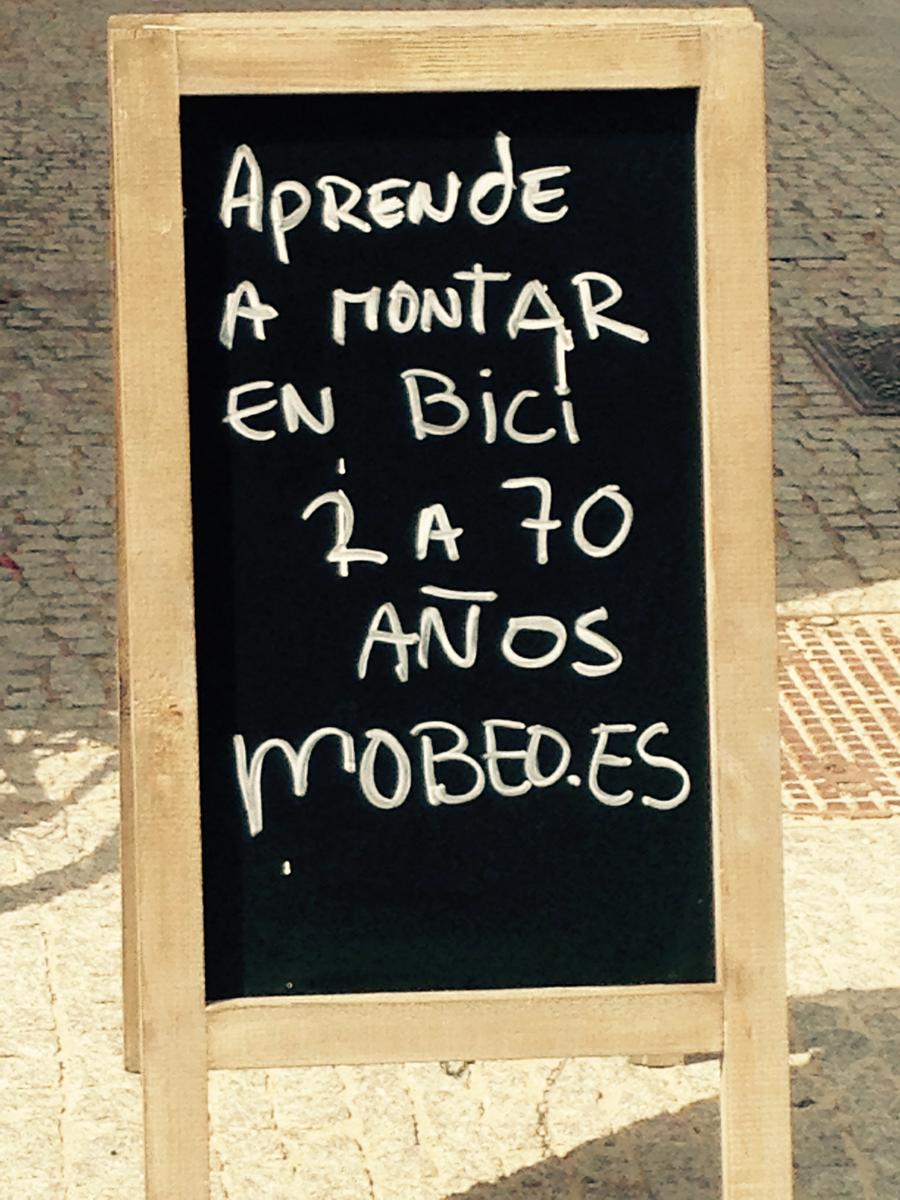 APRENDE
A MONTAR
EN BiCi
2 A 70
AÑOS
MOBEO.ES